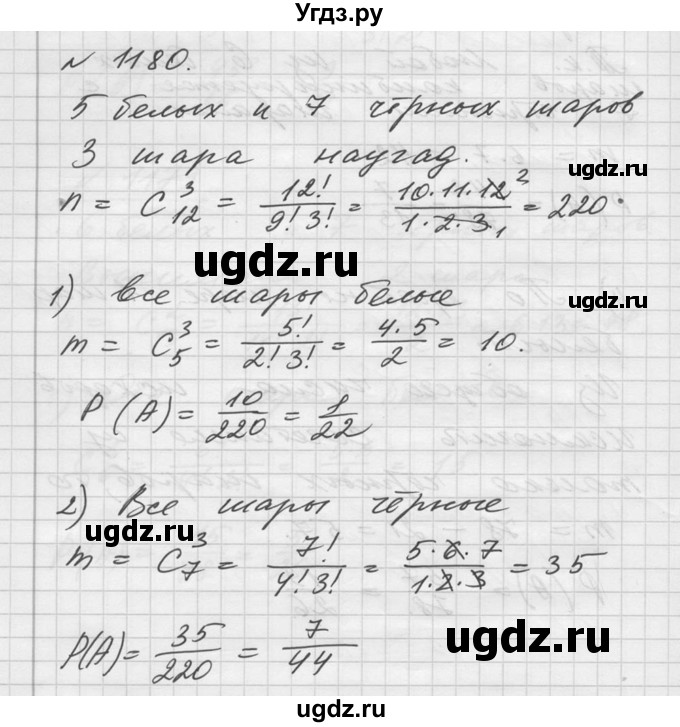 Угдз.ру
№ 1180.
5 белых и 7 чёрных шаров
3 шара наугад.
n = C₁₂³ = 12!/(9!3!) = (10·11·12²)/(1·2·3₁) = 220.
ugdz.ru
1) все шары белые
ugdz.ru
m = C₅³ = 5!/(2!3!) = (4·5)/2 = 10.
P(A) = 10/220 = 1/22
2) Все шары чёрные
ugdz.ru
m = C₇³ = 7!/(4!3!) = (5·6·7)/(1·2·3) = 35
P(A) = 35/220 = 7/44
ugdz.ru
ugdz.ru